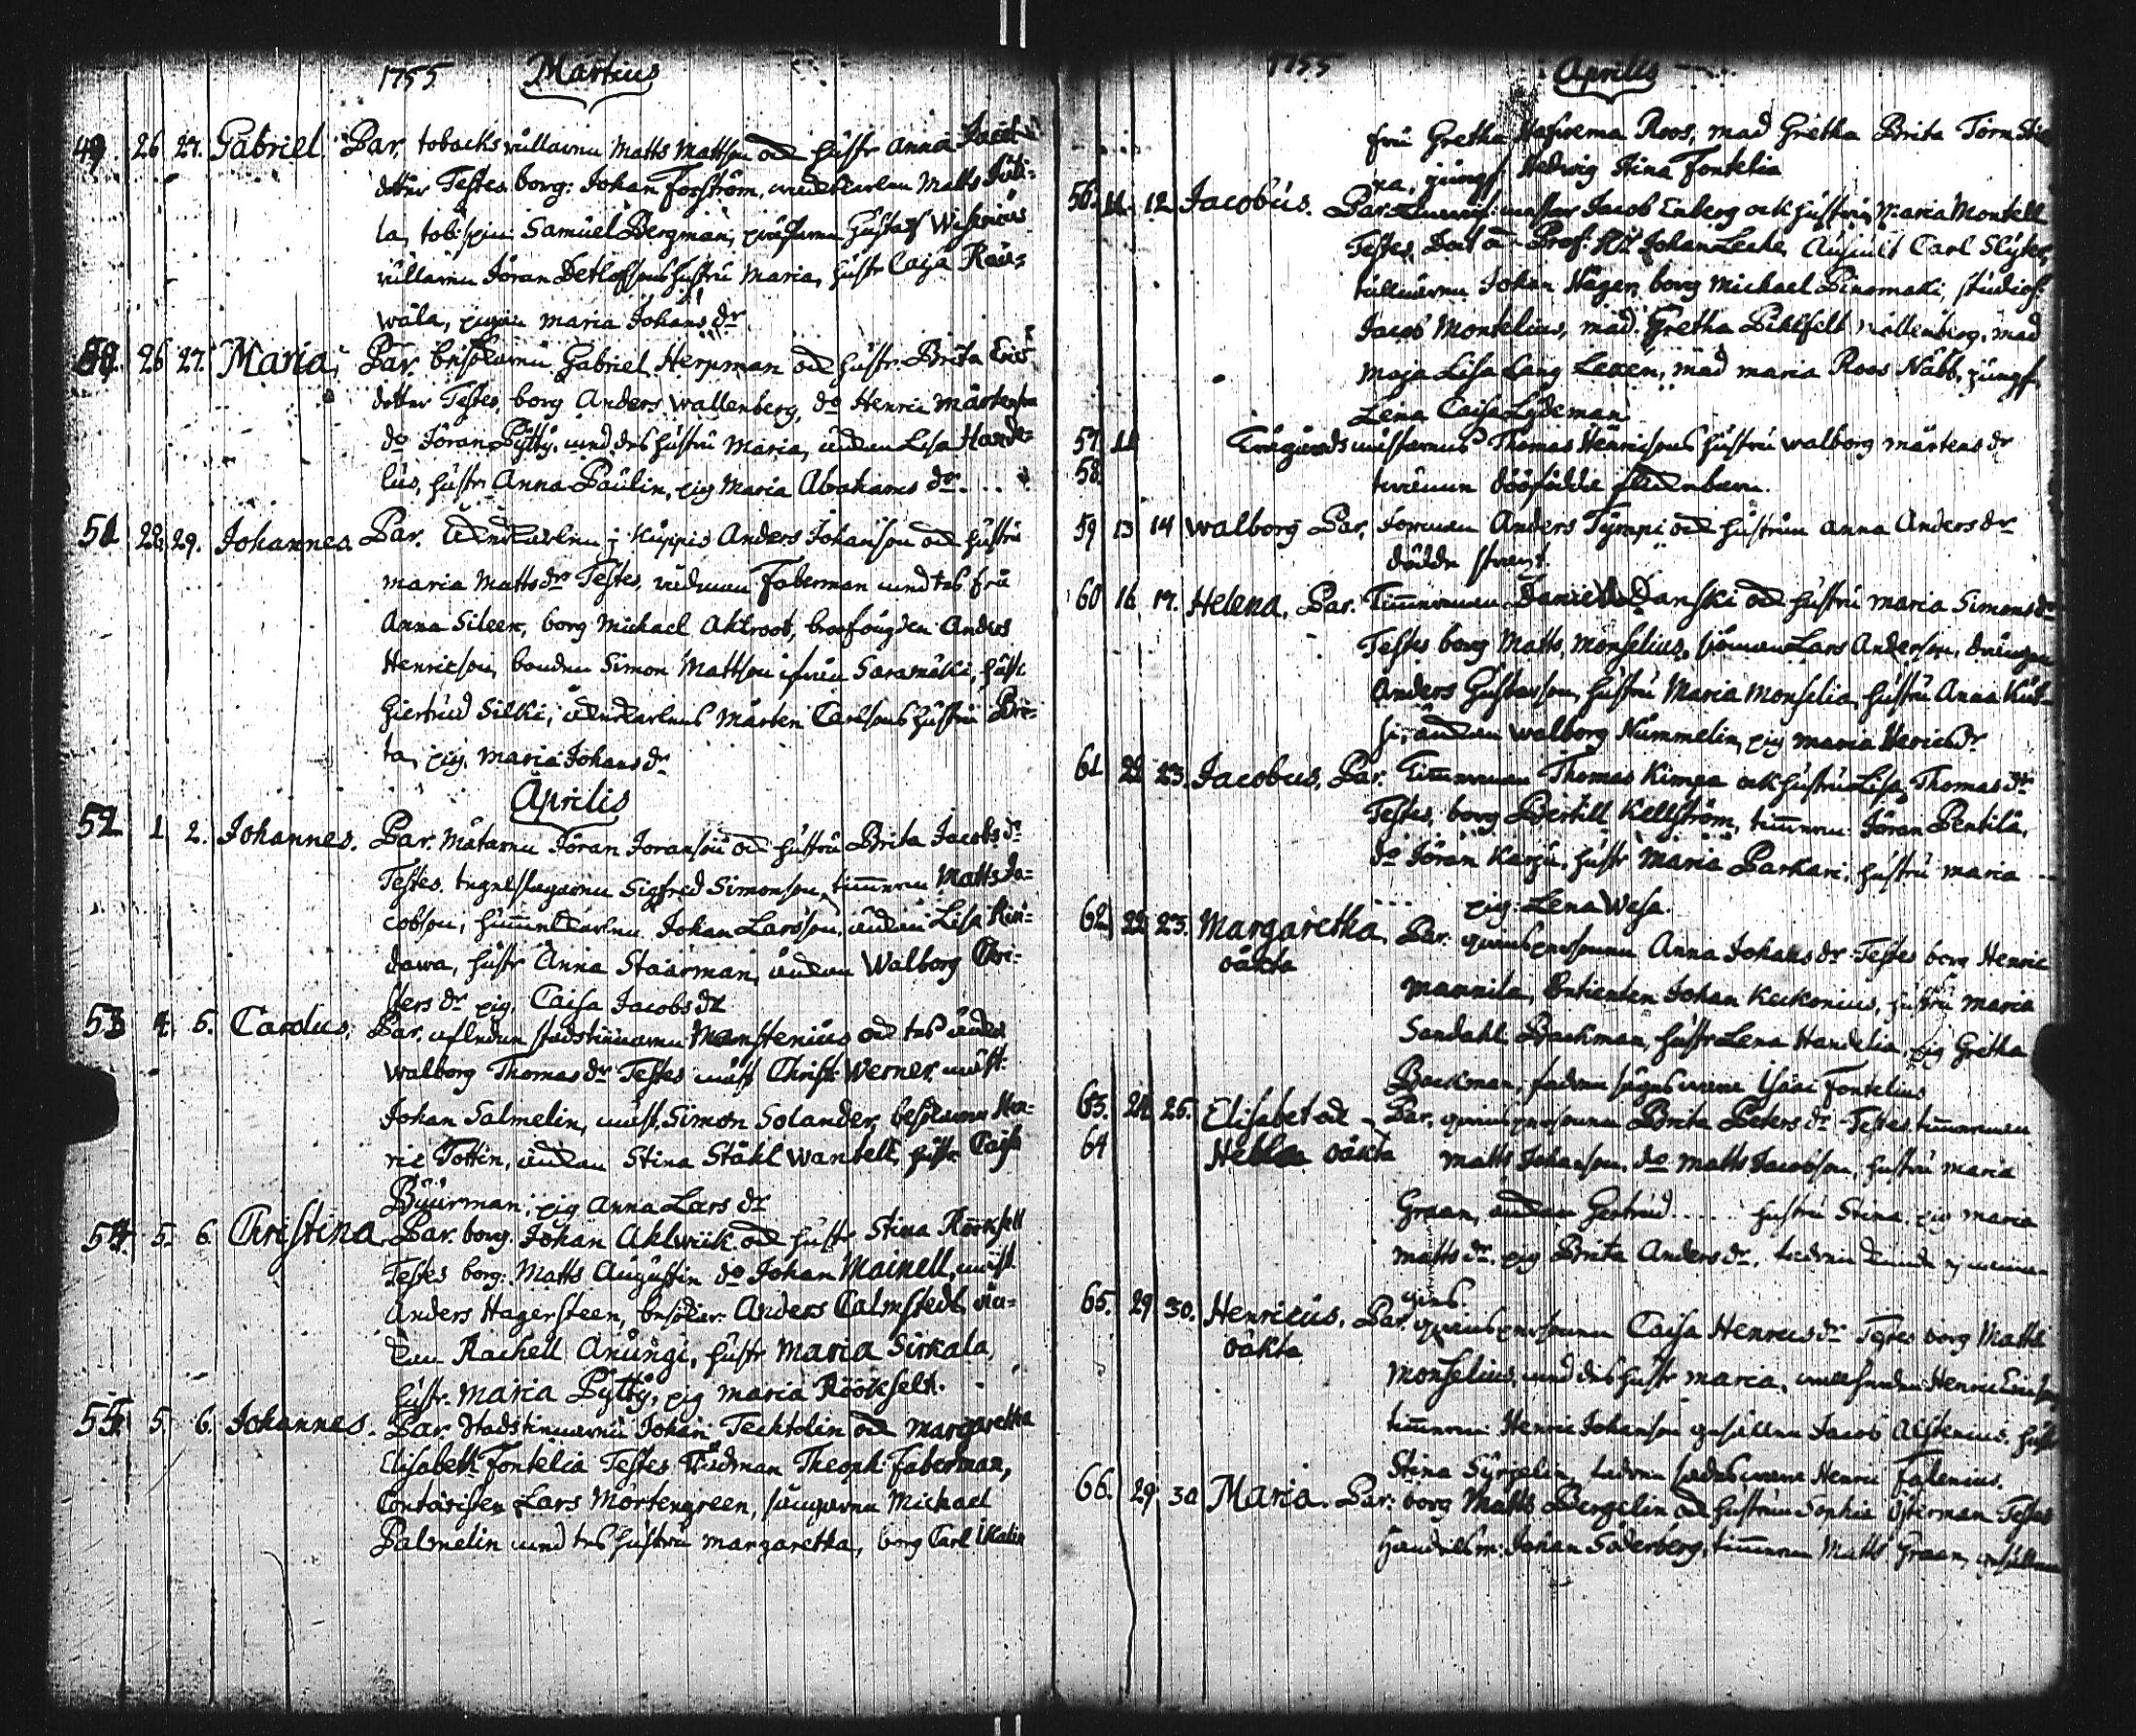 1755 Martius
49. 26 27. Gabriel. Par, tobacks Matts Mattson och hustr Anna
dotter Testes. borg: Johan Forsström, Matts
la, tob: Samuel Bergman, Gustaf Wisenius
Jöran Detloffsons hustru Maria, hustr Caisa Räi-
wäla, pigan Maria Johans dr.
50. 26 27. Maria, Par. Gabriel Herpman och hustr. Brita Erics
dotter Testes, borg Anders Wallenberg, do Henric Mårtenson
do Jöran Pytty, med des hustru Maria, änkan Lisa Hande-
lius, hustr Anna Paulin, pig Maria Abrahams dr.
51 28. 29. Johannes. Par. i Kuppis Anders Johanson och hustru
Maria Matts dr Testes, rådman Faberman med des fru
Anna Sileen, borg Michael Ahlroot, brofougden Anders
Henricson, bonden Simon Mattson ifrån Saramäki, hust
Giertrud Silki, Mårten Carlsons hustru Bri-
ta, pig. Maria Johans dr
Aprilis
52 1 2. Johannes. Par. Mätaren Jöran Joranson och hustru Brita Jacobs dr
Testes. tegelslagaren Sigfred Simonson, timmerm Matts Ja-
cobson, Johan Larsson, änkan Lisa Rin-
dawa, hustr Anna Staarman, änkan Walborg Chri-
sters dr pig. Caisa Jacobs dr
53 4. 5. Carolus, Par. afledne Monstenius och des änka
Walborg Thomas dr Testes mäst Christ: Werner, mäst.
Johan Salmelin, mäst. Simon Solander, Hen-
ric Tottin, änkan Stina Ståhl Wantell, hustr. Caisa
Buurman, pig Anna Lars dr
54. 5. 6. Christina Par. borg. Johan Ahlwiik och hustr Stina Röökselt
Testes borg: Matts Augustin do Johan Mainell, mäst.
Anders Hagersteen, Anders Calmstedt, än-
kan Rachell Anungi, hustr Maria Sirkala,
hustr. Maria Pytty, pig Maria Röökselt.
55. 5. 6. Johannes. Par. Johan Tecktolin och Margaretha
Elisabeth Fontelia Testes. Rådman Theoph. Faberman,
Contoristen Lars Mortengreen, Michael
Palmelin med des hustru Margaretha, borg Carl
1755 Aprilis
fru Gretha Roos, mad Gretha Brita
ra, jungf Hedwig Stina Fontelia
56. 11. 12. Jacobus. Par. Jacob Enberg och hustrun Maria Montell
Testes, Doct o Prof: Hr Johan Leche, August Carl Slyter,
Johan Häger, borg Michael Pinomäki, studios
Jacob Montelius, mad. Gretha mad
Maja Lisa Lang Lexen, mad Maria Roos Näbb, jungf
Lena Caisa Lydeman
57. 11 Thomas Henricsons hustru Walborg Mårtens dr
58. tvenne dödfödde
59 13 14 Walborg Par, Anders Tyrmpi och hustrun Anna Anders dr
dödde straxt.
60 16 17. Helena. Par. Timmerman Daniel Danski och hustru Maria Simons dr
Testes borg Matts Monselius, Lars Anderson, drängen
Anders Gustafson, hustru Maria Monselia, hustru Anna
änkan Walborg Nummelin, pig Maria Henrics dr
61 22 23. Jacobus, Par. Timmerman Thomas Kimpa och hustru Lisa Thomas dr
Testes, borg Bertill Kellström, timmerm Jöran Pentilä,
do Jöran Karju, hustr Maria Parkari, hustru Maria ...
... pig. Lena Wesa.
62 22 23. Margaretha Par. qvinspersonen Anna Johans dr Testes borg Henric
oäkta
Mannila, Johan Keckonius, hustru Maria
Sandahl Backman, hustr Lena Handelia, pig Gretha
Backman, fadren säges vara Isaac Fontelius
63. 24 25. Elisabet och Par. qvinspersonen Brita Peters dr Testes timmerman
64 Helena oäkta Matts Johanson, do Matts Jacobson, hustru Maria
Graan, änkan Gertrud .... hustru Stina. pig Maria
Matts dr. pig Brita Anders dr. fadren kunde ej
65. 29 30. Henricus. Par. qvinspersonen Caisa Henrics dr Testes borg Matts
oäkta
Monselius, med des hustr Maria, Henric
timmerm Henric Johanson gesällen Jacob Alstenius. hust
Stina Syrpelin, fadren sades vara Henric Falenius.
66. 29 30 Maria. Par: borg Matts Bergelin och hustrun Sophia Österman Testes
Handelsm. Johan Söderberg, timmerm Matts Graan, gesällen